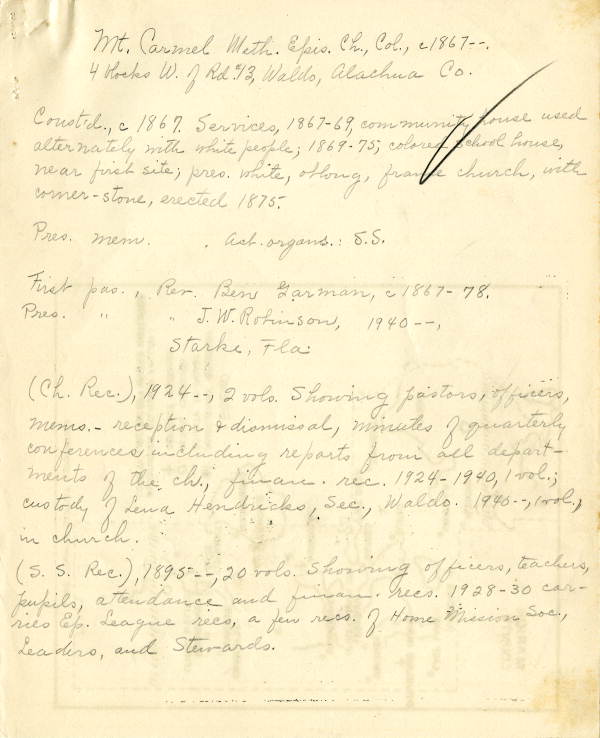 Mt. Carmel Meth. Epis. Ch., Col., c1867--.
4 blocks W. of Rd #13, Waldo, Alachua Co.
Const'd., c 1867. Services, 1867-69, community house used
alternately with white people; 1869-75; colored school house,
near first site; pres. white, oblong, frame church, with
corner-stone, erected 1875.
Pres. mem. . Act. organs.: S.S.
First pas., Rev. Ben Garman, c 1867-78.
Pres. " " J. W. Robinson, 1940--,
Starke, Fla.
(Ch. Rec.), 1924--, 2 vols. Showing pastors, officers,
mems.- reception & dismissal, minutes of quarterly
conferences including reports from all depart-
ments of the ch., finan. rec. 1924-1940, 1 vol.;
custody of Lena Hendricks, Sec., Waldo. 1940--, 1 vol.,
in church.
(S. S. Rec.), 1895--, 20 vols. Showing officers, teachers,
pupils, attendance and finan. recs. 1928-30 car-
ries Ep. League recs, a few recs. of Home Mission Soc.,
Leaders, and Stewards.